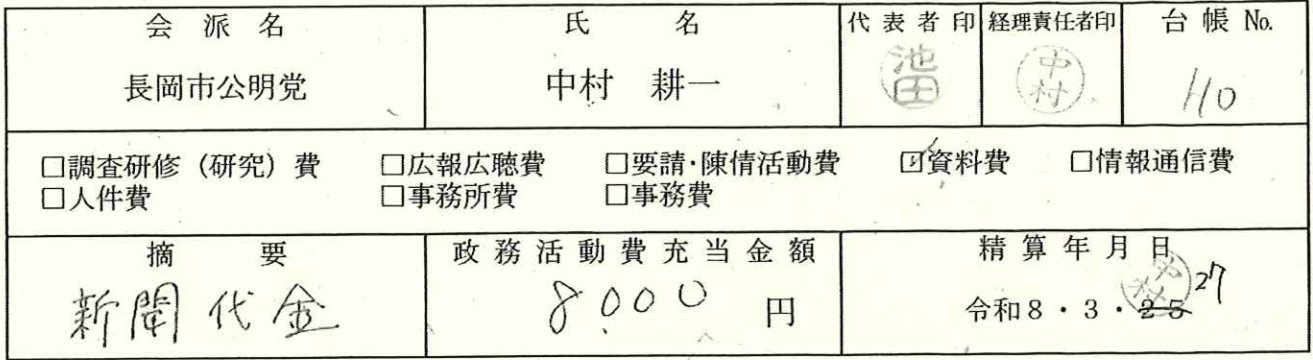 会派名 氏名 代表者印 経理責任者印 台帳 No.
長岡市公明党 中村 耕一 池田 中村 110
□調査研修（研究）費 □広報広聴費 □要請・陳情活動費 ☑資料費 □情報通信費
□人件費 □事務所費 □事務費
摘要 政務活動費充当金額 精算年月日
新聞代金 8,000 円 令和8・3・25 中村 27